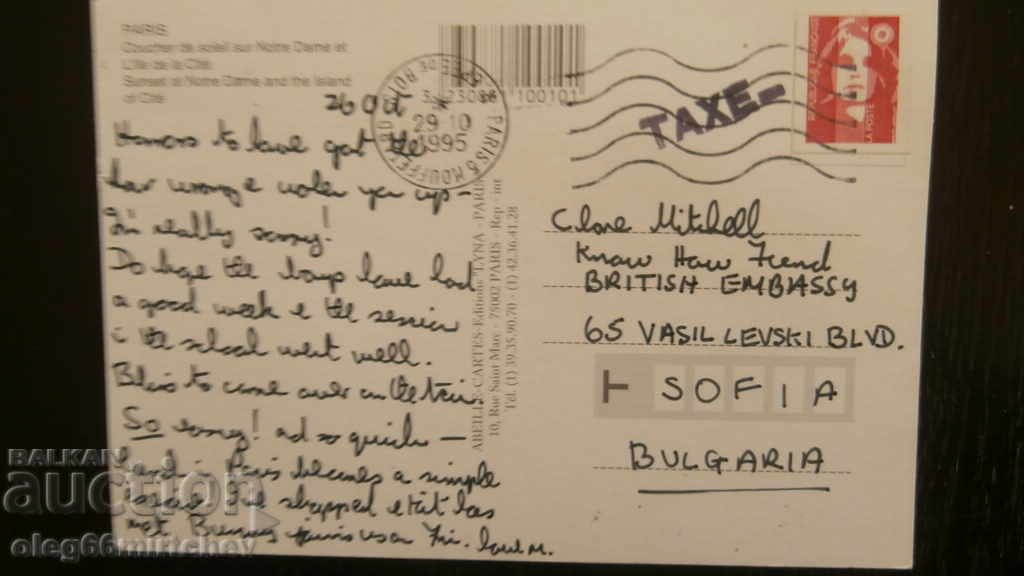 PARIS
Coucher de soleil sur Notre Dame et
L'Ile de la Cité
Sunset at Notre Dame and the Island
of Cité
26 Oct
3 123086 100101
PARIS 5 MOUFFE
29 10
1995
TAXE
LA POSTE
to have got the
wrong & woken you up -
I'm really sorry!
Do hope the have had
a good week & the session
the school went well.
Bliss to come over on the train.
So easy! and so quick -
Paris becomes a simple
stopped & it has
Fri. Love M.
ABEILLE-CARTES-Editions "LYNA-PARIS"
10, Rue Saint Marc - 75002 PARIS - Rep - int
Tél. (1) 39.35.90.70 - (1) 42.36.41.28
Clare Mitchell
Know How Fund
BRITISH EMBASSY
65 VASIL LEVSKI BLVD.
SOFIA
BULGARIA
BALKAN
auction
oleg66mirtchev